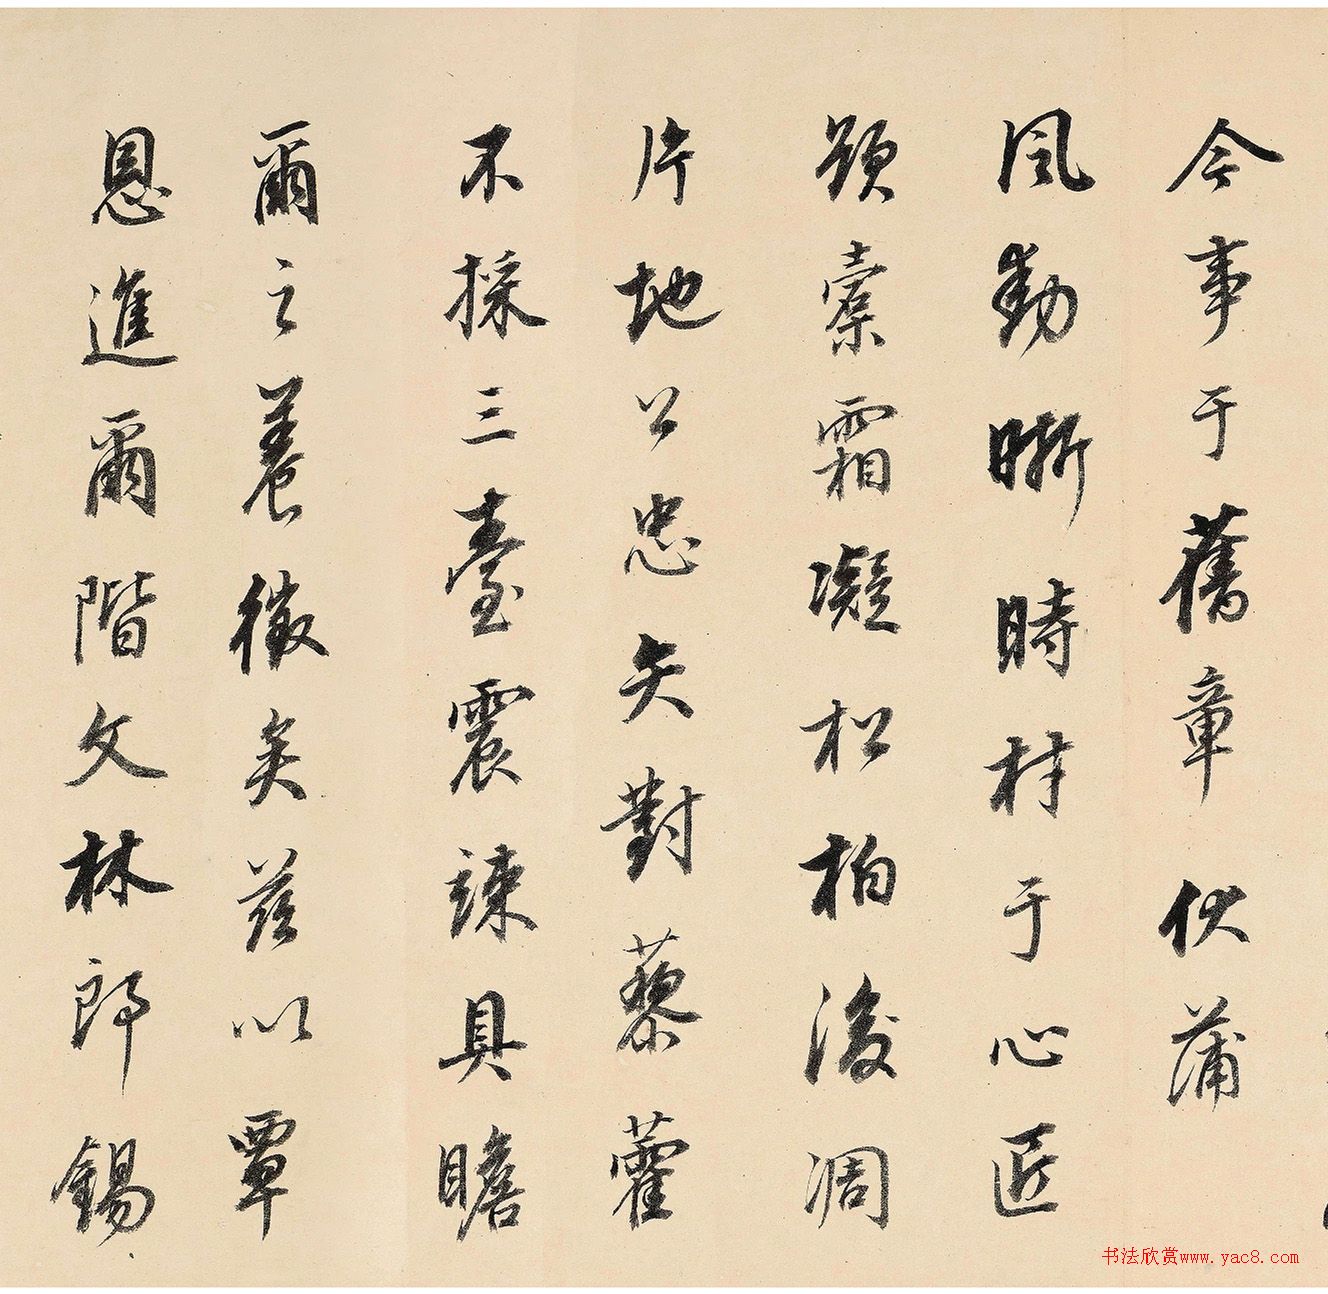 今事于舊章 伏蒲
風動晰時材于心匠
橐霜凝松柏後凋
片地公忠矢對藜藿
不採三臺震竦具瞻
爾之養徵矣茲以覃
恩進爾階文林郎錫
书法欣赏www.yac8.com